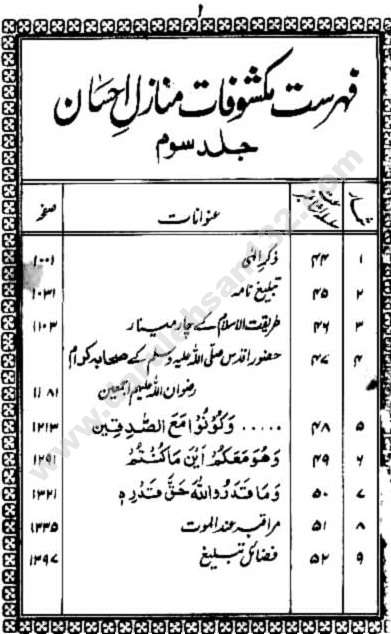 ۱
فہرست مکشوفات منازلِ احسان
جلد سوم
شمار سلسلۂ اشاعت نمبر عنوانات صفحہ
۱ ۴۴ ذکرِ الٰہی ۱۰۰۱
۲ ۴۵ تبلیغ نامہ ۱۰۳۱
۳ ۴۶ طریقت الاسلام کے چار مینار ۱۱۰۳
۴ ۴۷ حضورِ اقدس صلی اللہ علیہ وسلم کے صحابہ کرام
رضوان اللہ علیہم اجمعین ۱۱۸۱
۵ ۴۸ ..... وَكُونُوا مَعَ الصّٰدِقِين ۱۲۱۳
۶ ۴۹ وَهُوَ مَعَكُمْ اَيْنَ مَا كُنْتُمْ ۱۲۹۱
۷ ۵۰ وَمَا قَدَرُوا اللهَ حَقَّ قَدْرِهٖ ۱۳۲۱
۸ ۵۱ مراقبہ عند الموت ۱۳۳۵
۹ ۵۲ فضائل تبلیغ ۱۳۹۷